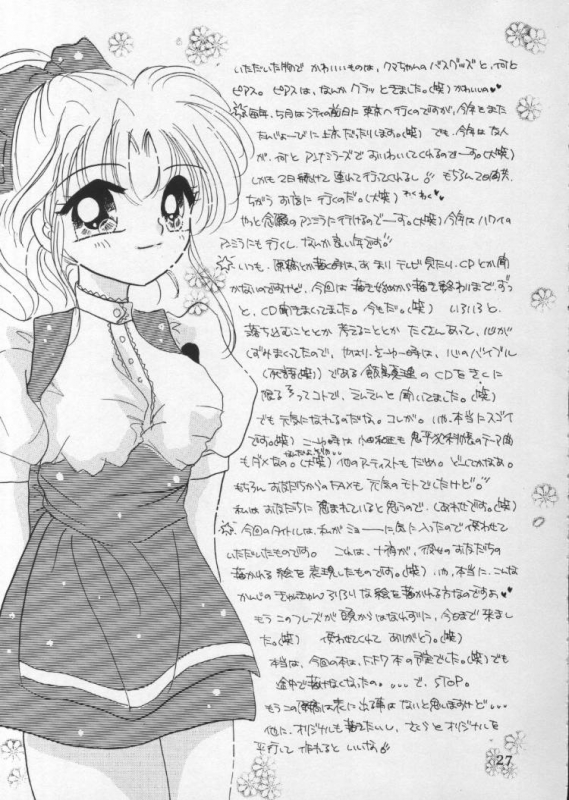 いただいた物で かわいいものは、クマちゃんのバスグッズと、何と
ピアス。ピアスは、なんかクラッときました。(笑) かわいいの♥♥
毎年、5月はシティの前日に東京へ行くのですが、今年もまた
たんじょーびに上京だったりします。(笑) でも、今年は友人
が、何とアンナミラーズでおいわいしてくれるのでーす。(大笑)
しかも2日続けて連れて行ってくれるし!! もちろん2日間共、
ちがうお店に行くのだ。(大笑) わくわく♥
やっと念願のアンミラに行けるのでーす。(大笑) 今年はハワイの
アンミラにも行くし、なんか良い年です。
☆いつも、原稿とか描く時は、あまりテレビ見たり、CDとか聞
かないのですけど、今回は描き始めから描き終わりまで、ずっ
と、CD聞きまくってました。今もだ。(笑) いろいろと、
落ち込むこととか 考えることとか たくさんあって、心が
しずみまくってたので、やはり、こーゆー時は、心のバイブル
(死語(笑)) である 飯島真理 のCDをきくに
限る ってコトで、えんえんと聞いてました。(笑)
でも元気になれるのだな。コレが。いや、本当にスゴイ
です。(笑) こーゆー時は 小田和正も 鬼平犯科帳のテーマ曲
もダメなの。(大笑) 他のアーティストもだめ。どーしてかなぁ。
もちろん お友だちからのFAXも 元気のモトでしたけど。
私は お友だちに 恵まれていると思うので、しあわせです。(笑)
☆今回のタイトルは、私がミョーーに気に入ったので使わせて
いただいたものです。これは、 が、彼女のお友だちの
描かれる絵を表現したものです。(笑) いや、本当に、こんな
かんじの な絵を描かれる方なのですよ♥♥
もう このフレーズが 頭からはなれずに、今日まで来まし
た。(笑) 使わせてくれて ありがとう。(笑)
本当は、今回の本は、FF7本の予定でした。(笑) でも
途中で描けなくなったの。。。。で、STOP。
もうこの原稿は表に出る事はないと思いますけど...
他に、オリジナルも描きたいし、 とオリジナルを
平行して 作れると いいな。
27